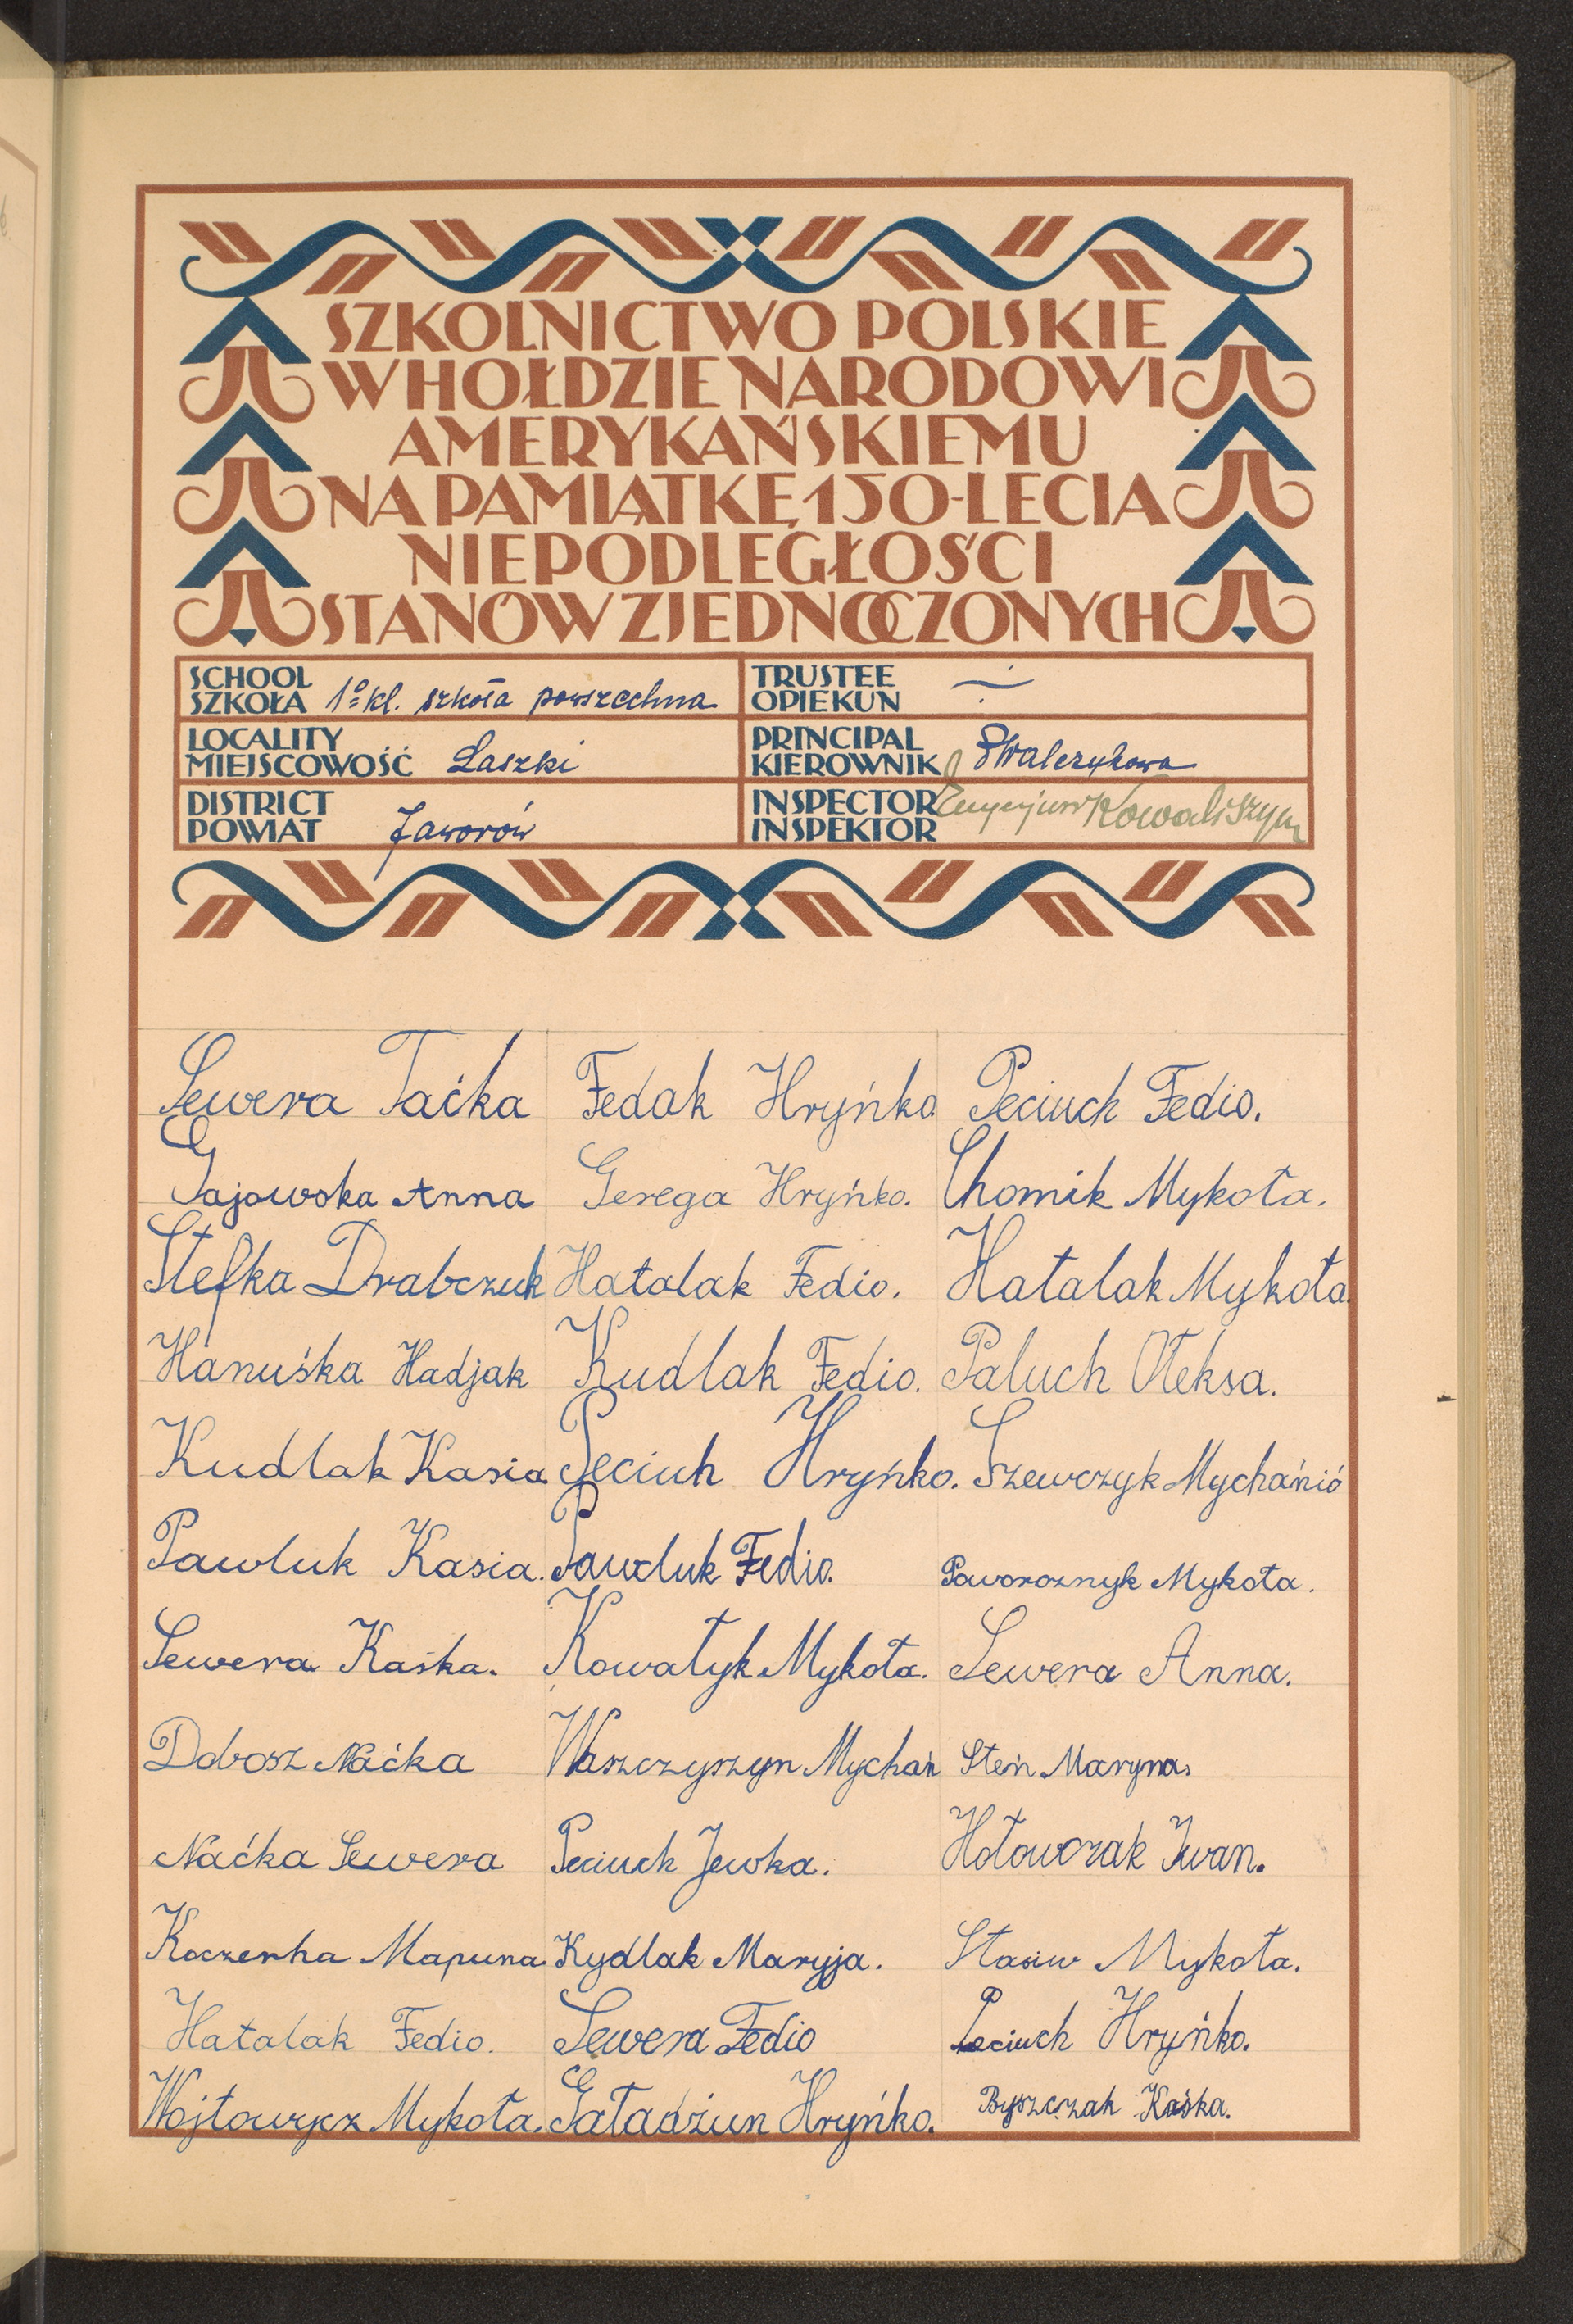 SZKOLNICTWO POLSKIE
W HOŁDZIE NARODOWI
AMERYKAŃSKIEMU
NA PAMIĄTKĘ 150-LECIA
NIEPODLEGŁOŚCI
STANÓW ZJEDNOCZONYCH
SCHOOL
SZKOŁA 1º kl. szkoła powszechna
TRUSTEE
OPIEKUN
LOCALITY
MIEJSCOWOŚĆ Laszki
PRINCIPAL
KIEROWNIK Walczykowa
DISTRICT
POWIAT Jaworów
INSPECTOR
INSPEKTOR Kowaliszyn
Sewera Taćka Fedak Hryńko Peciuch Fedio.
Gajowska Anna Gerega Hryńko. Chomik Mykoła.
Stefka Drabczuk Hatalak Fedio. Hatalak Mykoła.
Hanuśka Hadjak Kudlak Fedio. Paluch Ołeksa.
Kudlak Kasia Peciuh Hryńko. Szewczyk Mychańió
Pawluk Kasia. Pawluk Fedio. Poworoznyk Mykoła.
Sewera Kaśka. Kowałyk Mykoła. Sewera Anna.
Dobosz Naćka Waszczyszyn Mychań Steń Maryna.
Naćka Sewera Peciuch Jewka. Hołowczak Iwan.
Koczerha Mapuna. Kydlak Maryja. Stasiw Mykoła.
Hatalak Fedio. Sewera Fedio Peciuch Hryńko.
Wojtowycz Mykoła. Gaładżun Hryńko. Byszczak Kaśka.